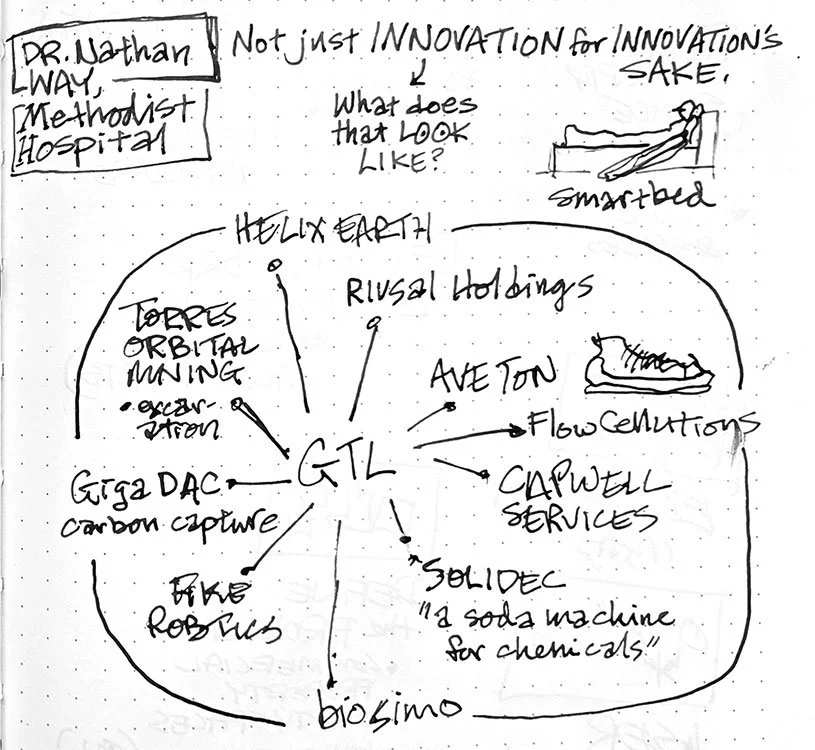 DR. Nathan
WAY,
Methodist
Hospital
Not just INNOVATION for INNOVATION's
SAKE.
What does
that LOOK
LIKE?
smartbed
HELIX EARTH
Rivsal Holdings
TORRES
ORBITAL
MINING
• excav-
ation
AVETON
Flow Cellutions
GTL
Giga DAC
carbon capture
CAPWELL
SERVICES
FIKE
ROBOTICS
SOLIDEC
"a soda machine
for chemicals"
biosimo